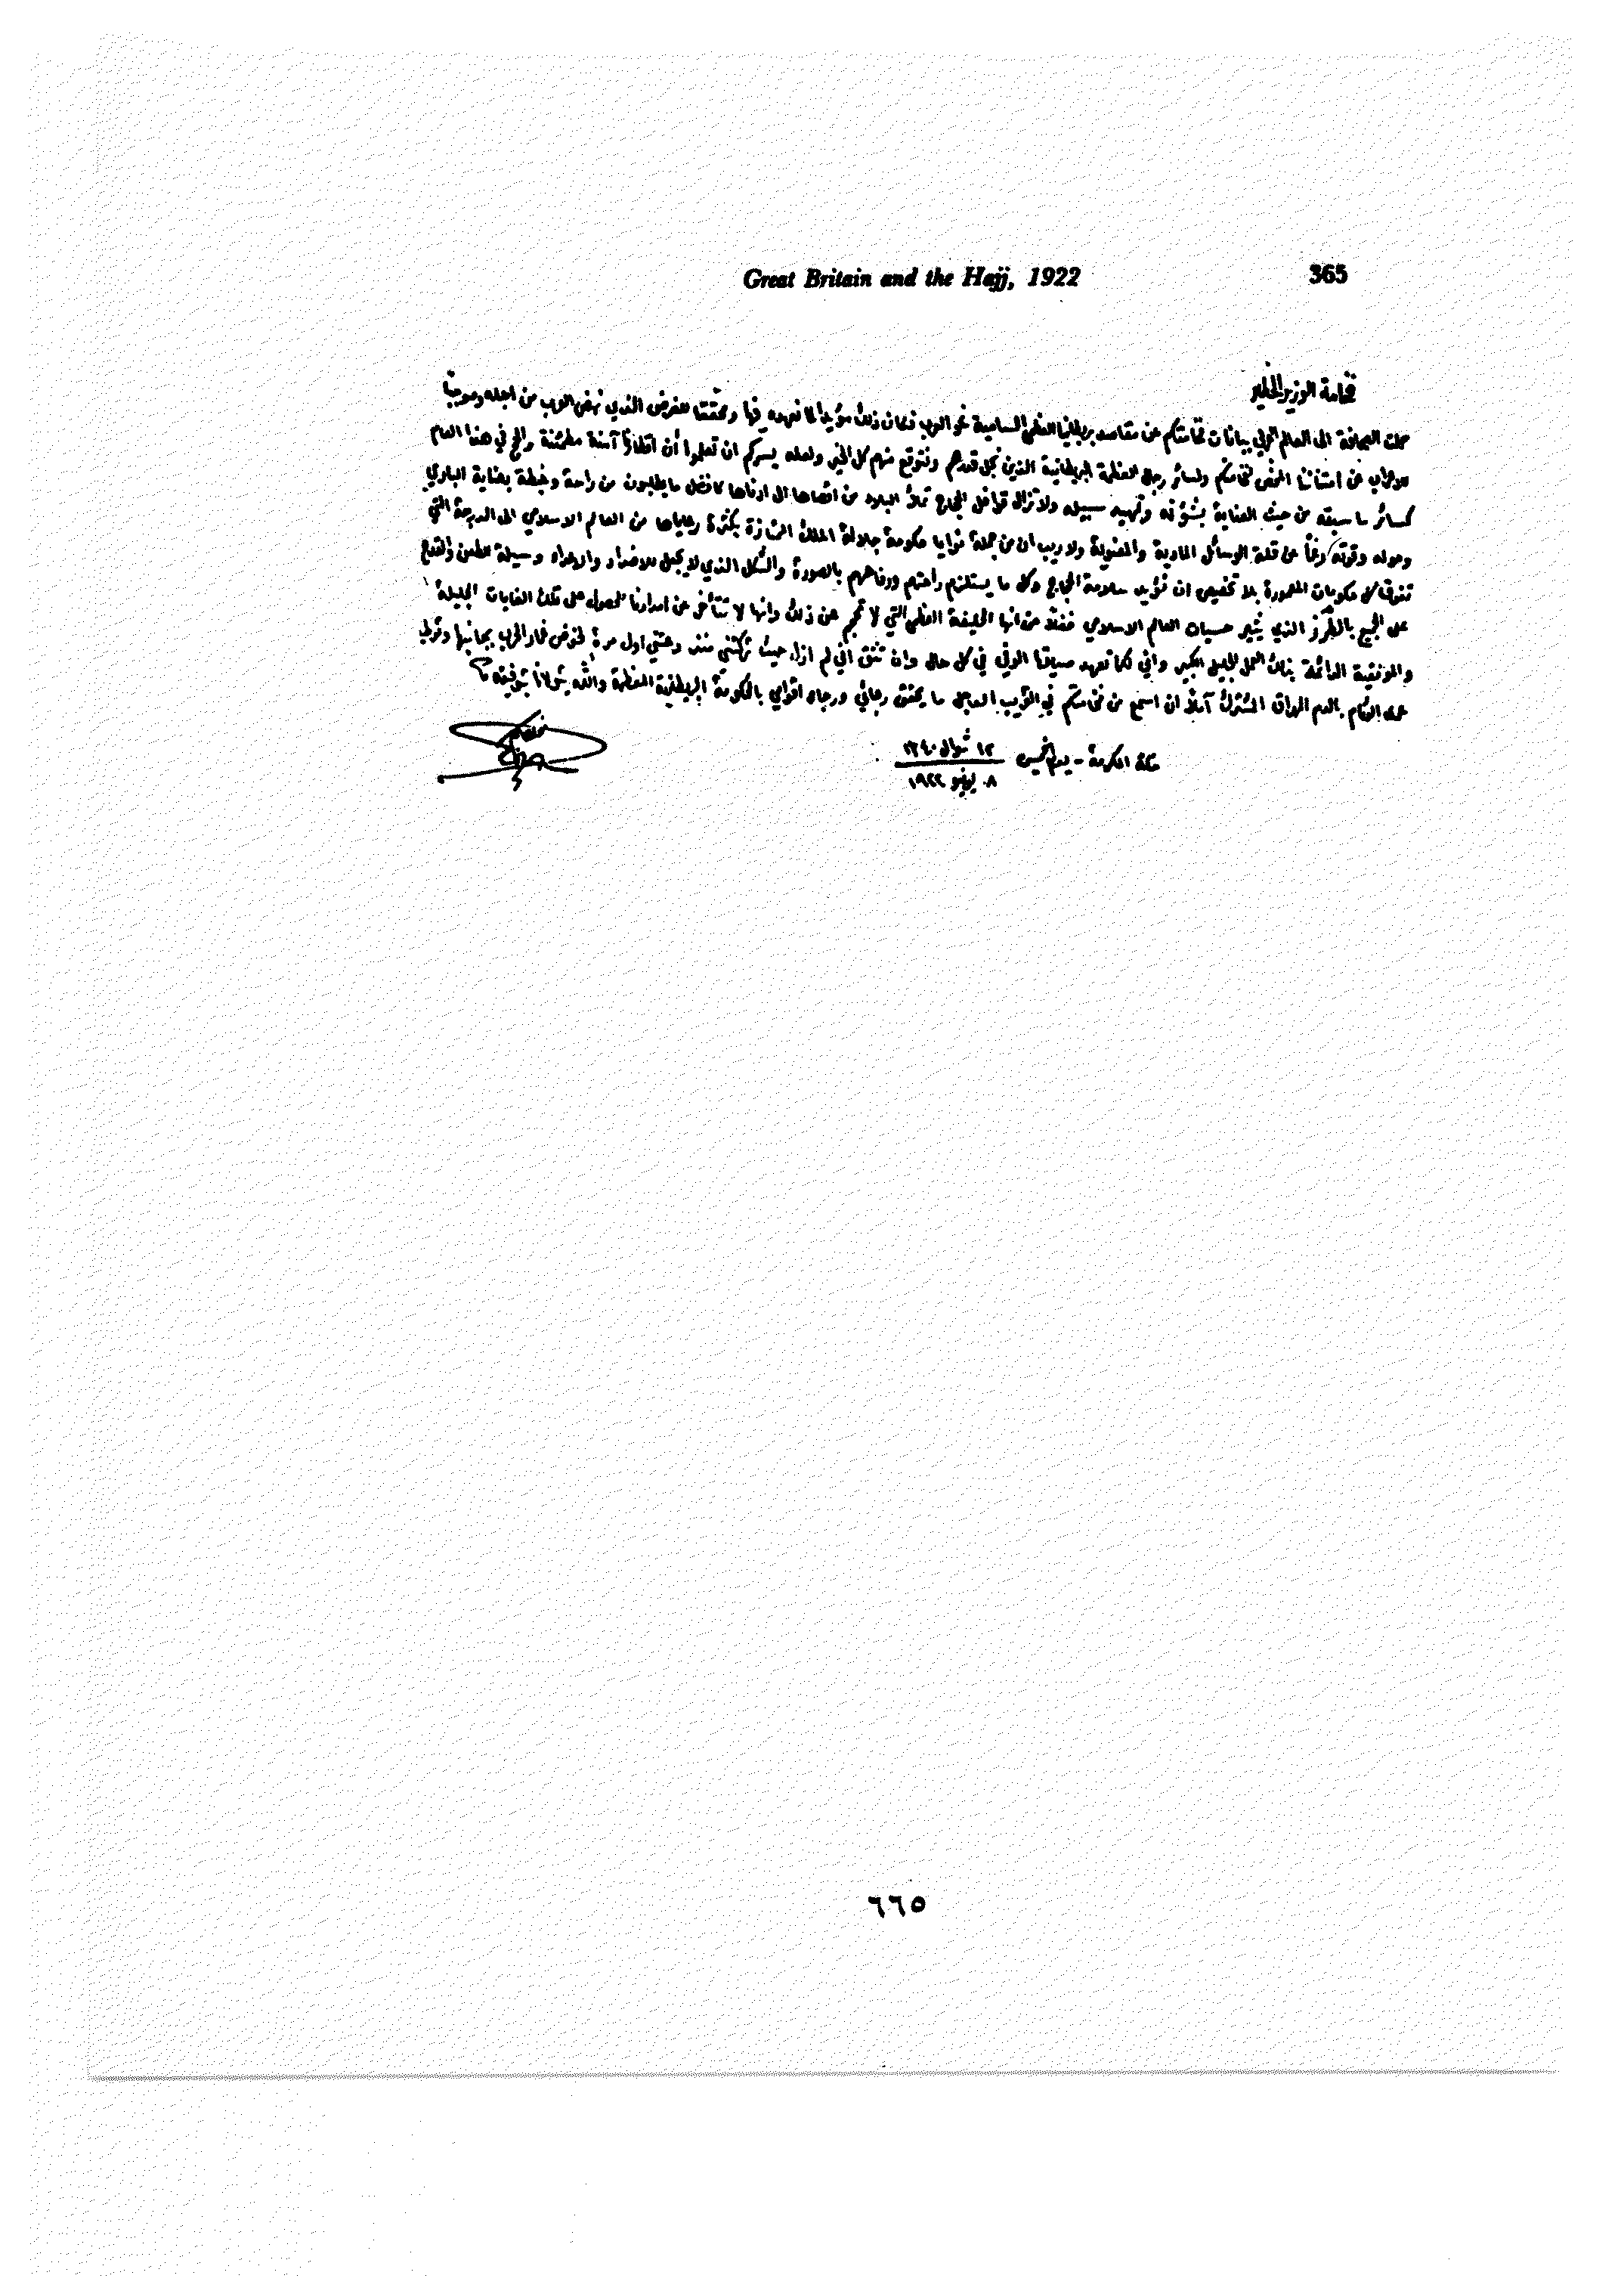 Great Britain and the Hajj, 1922 365
فخامة الوزير الخطير
حملت الصحافة الى العالم العربي بيانات فخامتكم عن مقاصد بريطانيا العظمى السامية نحو العرب فكان ذلك مؤيداً لما نعهده فيها ومحققاً للغرض الذي نهض العرب من اجله وموجباً
للاعراب عن امتناننا المحض لفخامتكم ولسائر رجال العظمة البريطانية الذين نجل قدرهم ونتوقع منهم كل الخير ولعله يسركم ان تعلموا أن اقطارنا آمنة مطمئنة والحج في هذا العام
كسائر ما سبقه من حيث العناية بشؤنه وتمهيد سبيله ولا تزال قوافل الحجاج تملأ البلاد من اقصاها الى ادناها كافضل ما يطلبون من راحة وغبطة بعناية الباري
وحوله وقوته رغماً عن قلة الوسائل المادية والمعنوية ولا ريب ان من جملة نوايا حكومة جلالة الملك الممتازة بكثرة رعاياها من العالم الاسلامي الى الدرجة التي
تفوق كل حكومات المعمورة بلا تخصيص ان تؤيد سلامة الحجاج وكل ما يستلزم راحتهم ورفاههم بالصورة والشكل الذي لا يجعل للاضداد والاعداء وسيلة للطعن والقدح
على الجميع بالطرز الذي يثير حسيات العالم الاسلامي فضلاً عن انها الحليفة العظمى التي لا تحجم عن ذلك وانها لا تتأخر عن امدادنا للحصول على تلك الغايات الجليلة
والموفقية الدائمة بذلك العمل الجليل الكبير واني لكما تعهد صديقنا الوفي في كل حال وان تثق اني لم ازل حيث تركتني منذ دعتني اول مرة لخوض غمار الحرب بجانبها وقولي
على الدوام بالدم المهراق المشترك آملاً ان اسمع من فخامتكم في القريب العاجل ما يحقق رجائي ورجاء اقوامي بالحكومة البريطانية المعظمة والله يتولانا بتوفيقه
مكة المكرمة - يوم الخميس ١٢ شوال ١٣٤٠
٠٨ يونيو ١٩٢٢
٦٦٥